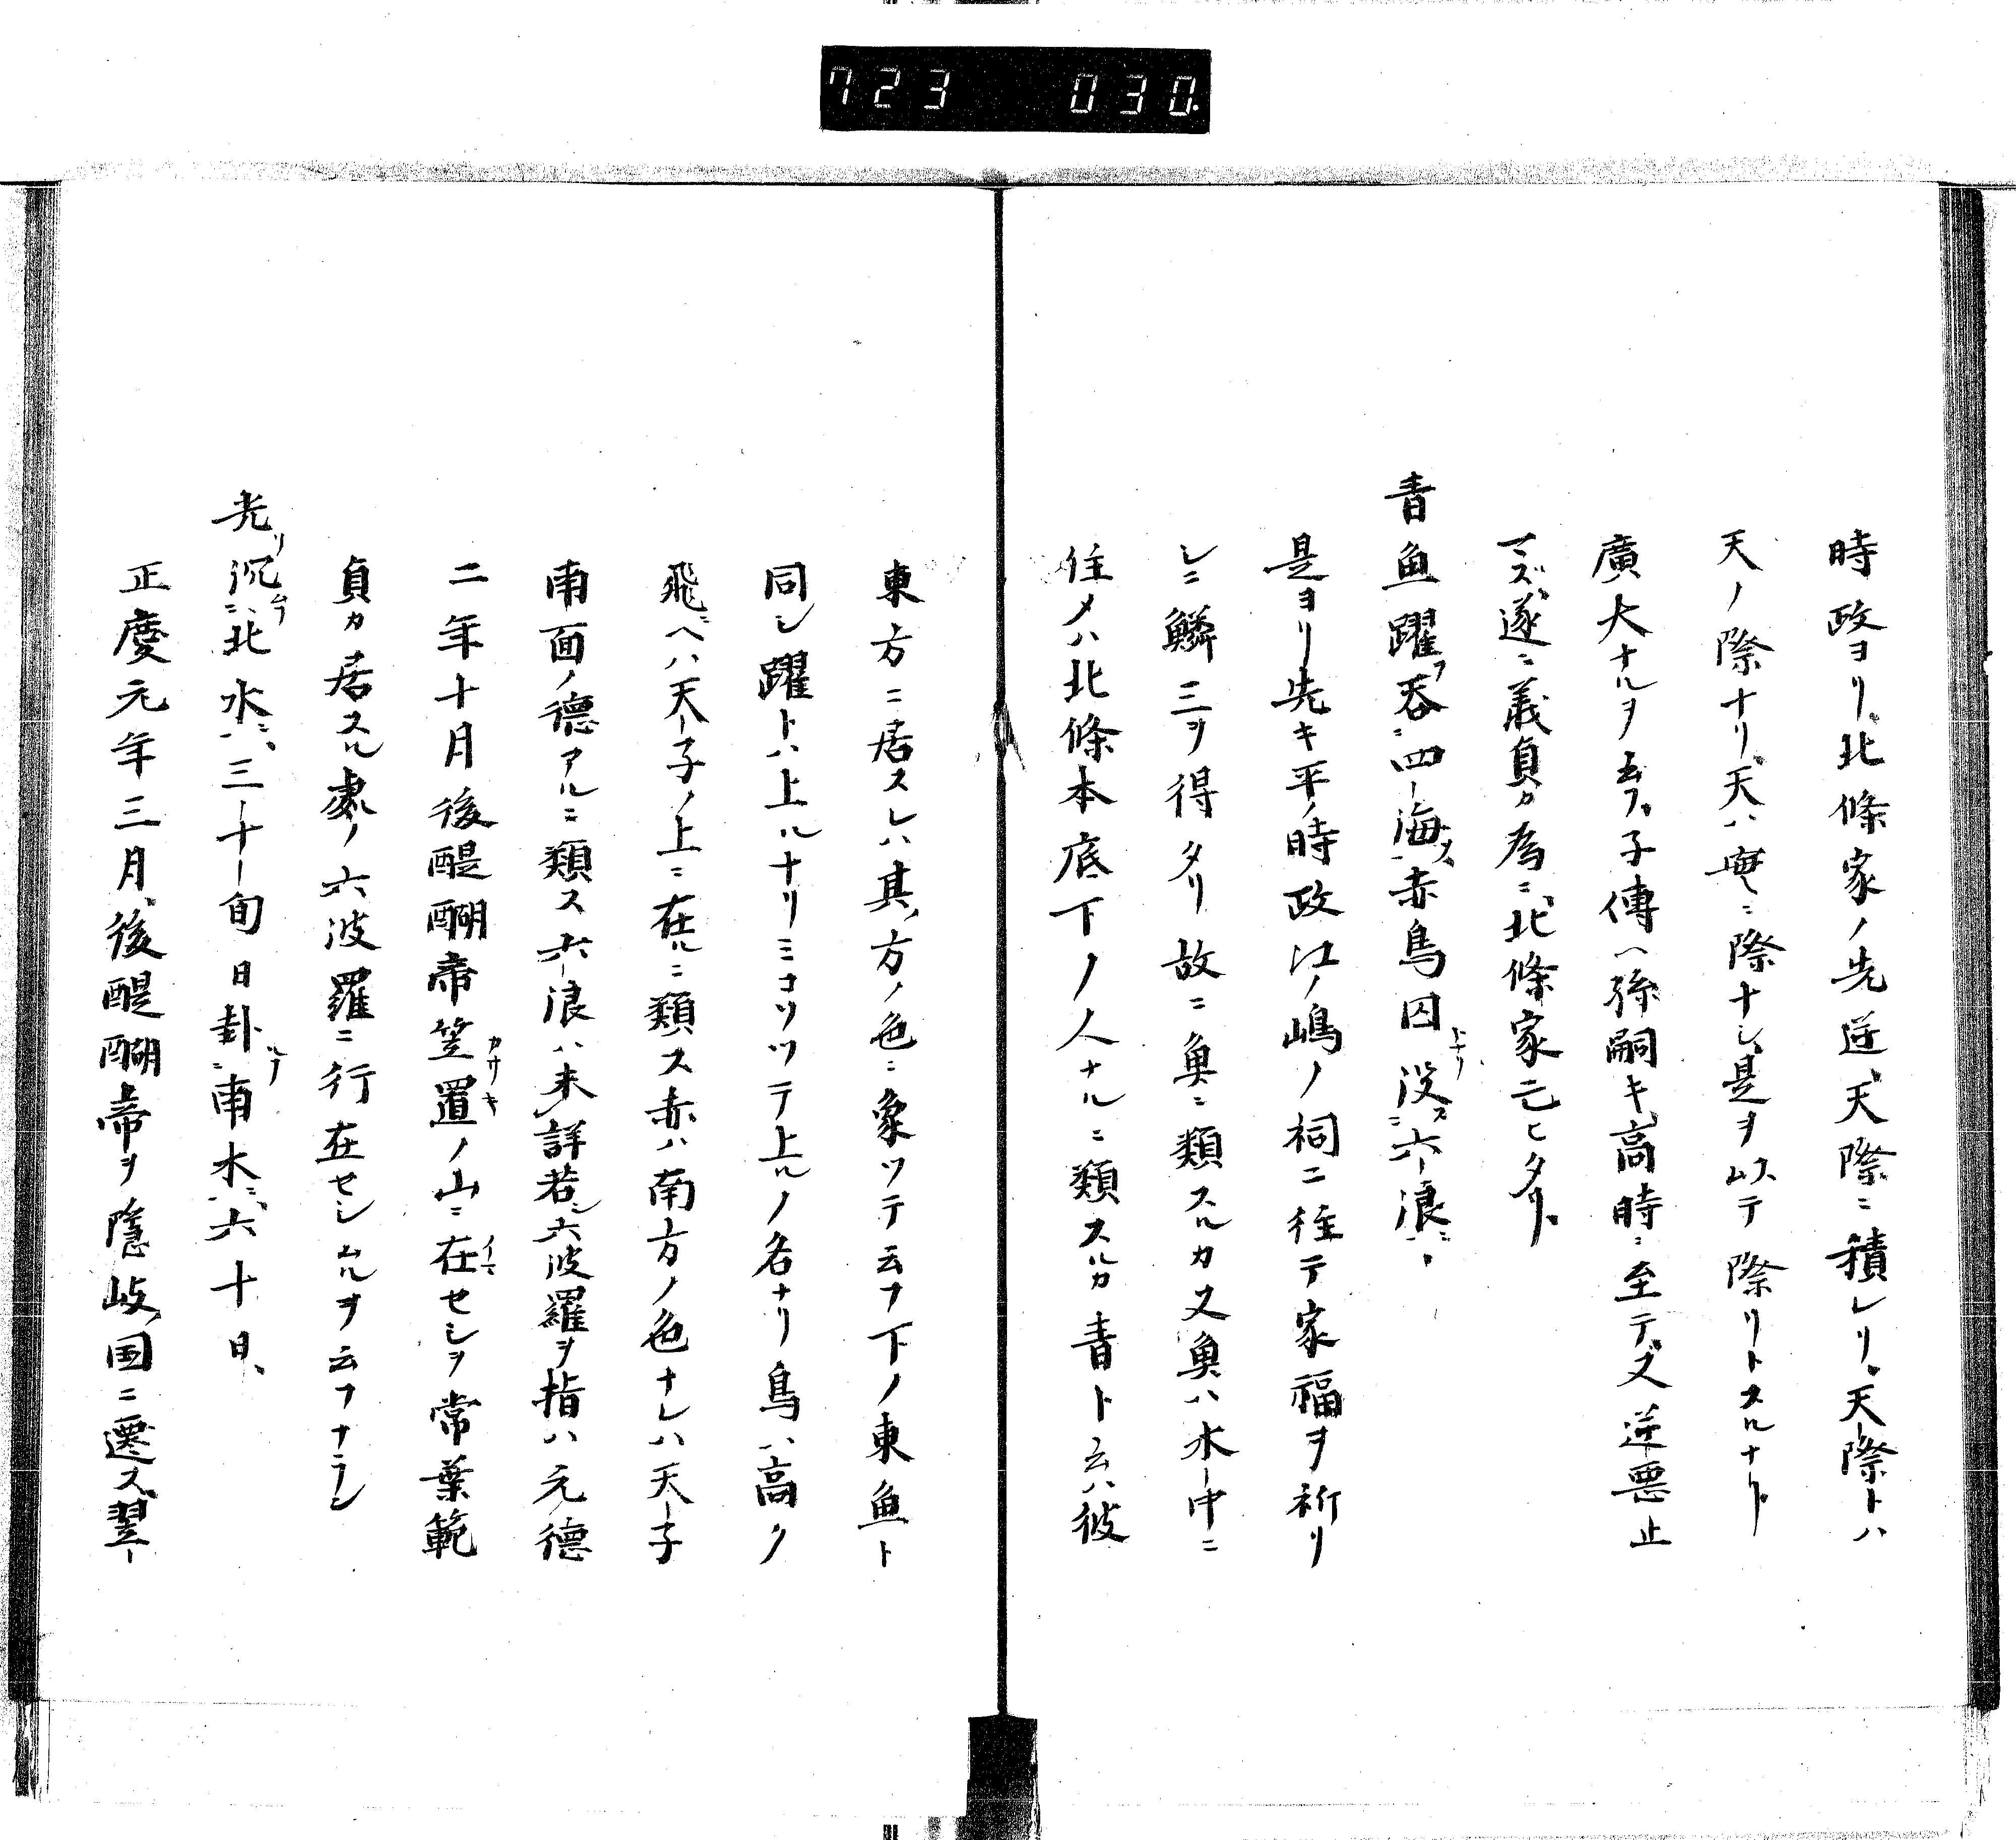 723 030.
時政ヨリ北條家ノ先逆天際ニ積レリ天際トハ
天ノ際ナリ天ハ無ニ際ナシ是ヲ以テ際リトスルナリ
廣大ナルヲ云フ子傳ヘ孫嗣キ高時ニ至テ又逆悪止
マズ遂ニ義貞カ為ニ北條家亡ヒタリ
青魚躍テ呑ニ四海ヲ赤鳥囚トナリ没ス六浪ニ
是ヨリ先キ平ノ時政江ノ嶋ノ祠ニ往テ家福ヲ祈リ
シニ鱗三ヲ得タリ故ニ魚ニ類スルカ又魚ハ水中ニ
住メハ北條本底下ノ人ナルニ類スルカ青ト云ハ彼
東方ニ居スレハ其方ノ色ニ象ツテ云フ下ノ東魚ト
同シ躍トハ上ルナリミコソツテ上ルノ名ナリ鳥ハ高ク
飛ヘハ天子ノ上ニ在ルニ類ス赤ハ南方ノ色ナレハ天子
南面ノ德アルニ類ス六浪ハ未詳若シ六波羅ヲ指ハ元德
二年十月後醍醐帝笠置カサキノ山ニ在セシヲ常葉範
貞カ居スル處ノ六波羅ニ行在セシムルヲ云フナラン
光リ沉ムテ北水ニ三十旬日卦ルテ南木ニ六十日
正慶元年三月後醍醐帝ヲ隱岐国ニ遷ス翌